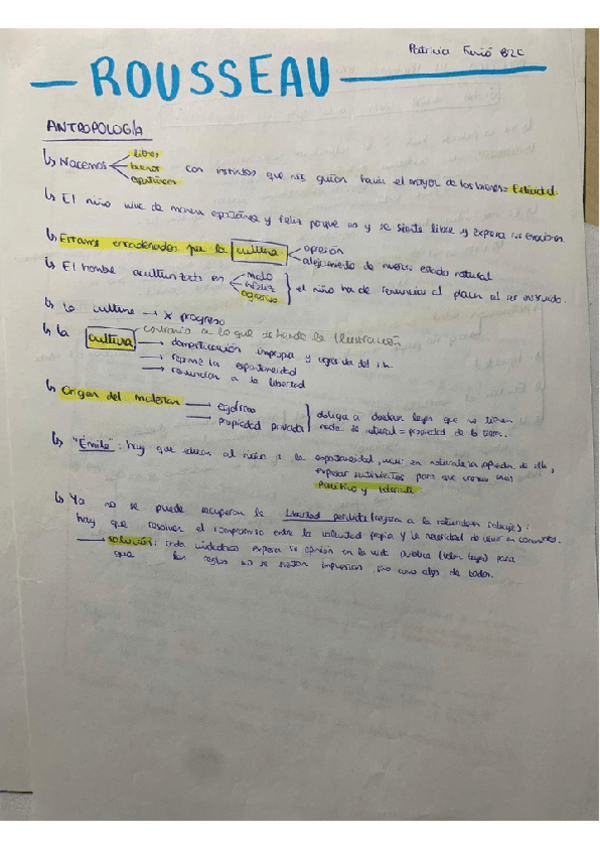 Patricia Furió B2C
— ROUSSEAU —
ANTROPOLOGÍA
↳ Nacemos libres
buenos con instintos que nos guían hacia el mayor de los bienes= Felicidad.
espontáneos
↳ El niño vive de manera espontánea y feliz porque es y se siente libre y expresa sus emociones.
↳ Estamos encadenados por la cultura opresión
alejamiento de nuestro estado natural
↳ El hombre acultun en malo
infeliz el niño ha de renunciar al placer al ser instruido.
agresivo
↳ La cultura → x progreso
↳ La cultura contrario a lo que defiende la Ilustración
→ domesticación impropia y del
→ reprime la espontaneidad
→ renuncian a la libertad
↳ Origen del malestar → egoísmo
→ propiedad privada
obliga a diseñar leyes que no tienen
nada de natural = propiedad de la tierra.
↳ "Emilio": hay que educar al niño a la espontaneidad, en naturaleza de ella,
expresar sentimientos para que crezca
Pacífico y tolerante
↳ Ya no se puede recuperar la libertad perdida (regresar a la naturaleza salvaje):
hay que resolver el compromiso entre la voluntad propia y la necesidad de vivir en comunidad.
→ solución: cada individuo expresa su opinión en la vida pública (votar leyes) para
que las reglas no se sientan impuestas sino como algo de todos.